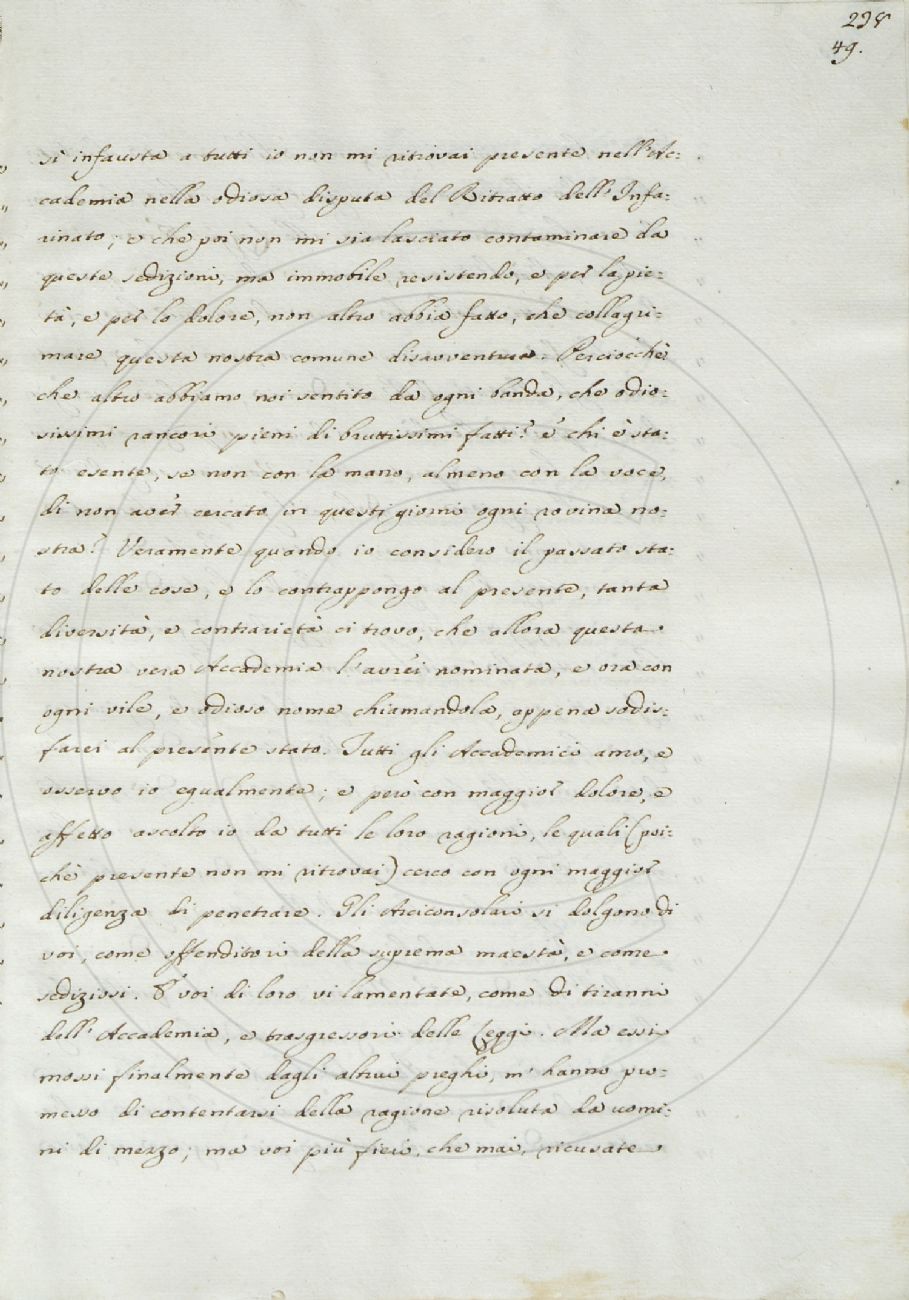 238
49.
sì infausta a tutti io non mi ritrovai presente nell'Ac:
cademia nella odiosa disputa del Ritratto dell'Infa:
rinato; e che poi non mi sia lasciato contaminare da
queste sedizioni, ma immobile, resistendo, e per la pie:
tà, e per lo dolore, non altro abbia fatto, che collagri:
mare questa nostra comune disavventura. Perciocchè
che altro abbiamo noi sentito da ogni banda, che odio:
sissimi rancori pieni di bruttissimi fatti? e chi è sta:
to esente, se non con la mano, almeno con la voce,
di non aver cercato in questi giorni ogni rovina no:
stra? Veramente quando io considero il passato sta:
to delle cose, e lo contrappongo al presente, tanta
diversità, e contrarietà ci trovo, che allora questa
nostra vera Accademia l'avrei nominata, e ora con
ogni vile, e odioso nome chiamandola, appena sodis:
farei al presente stato. Tutti gli Accademici amo, e
osservo io egualmente; e però con maggior dolore, e
affetto ascolto io da tutti le loro ragioni, le quali (poi:
chè presente non mi ritrovai) cerco con ogni maggior
diligenza di penetrare. Gli Arciconsolari si dolgono di
voi, come offenditori della suprema maestà, e come
sediziosi. E voi di loro vi lamentate, come di tiranni
dell'Accademia, e trasgressori delle Leggi. Ma essi
mossi finalmente dagli altrui preghi, m'hanno pro:
messo di contentarsi della ragione risoluta da uomi:
ni di mezzo; ma voi più fieri, che mai, ricusate